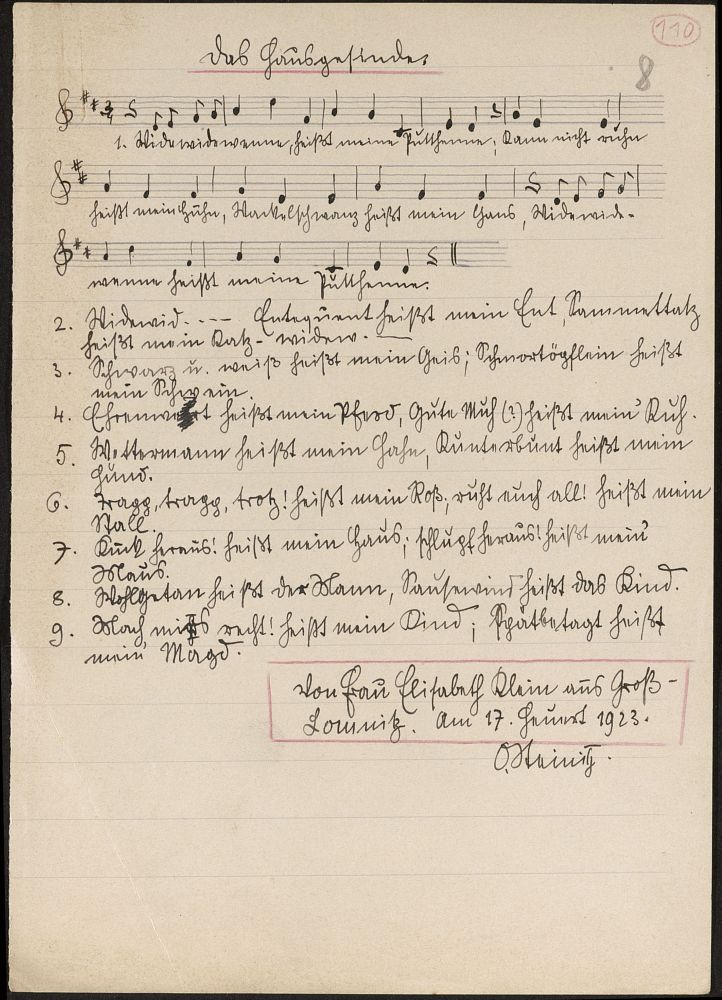 110
8
Das Hausgesinde.
1. Widewidewenne, heißt meine Putthenne; Kann nicht ruhn
heißt mein Huhn, Wackelschwanz heißt mein Gans, Widewide-
wenne heißt meine Putthenne.
2. Widewid. --- Entequent heißt mein Ent, Sammettatz
heißt mein Katz - widew. —
3. Schwarz u. weiß heißt mein Geis; Schmortöpflein heißt
mein Schwein.
4. Ehrenwert heißt mein Pferd, Gute Muh (?) heißt mein Kuh.
5. Wettermann heißt mein Hahn, Kunterbunt heißt mein
Hund.
6. Trapp, trapp, trotz! heißt mein Roß; ruht euch all! heißt mein
Stall.
7. Kuck heraus! heißt mein Haus; schlupf heraus! heißt mein
Maus.
8. Wohlgetan heißt der Mann, Sausewind heißt das Kind.
9. Mach mirs recht! heißt mein Kind; Spätbetagt heißt
mein Magd.
Von Frau Elisabeth Klein aus Groß-
Lomnitz. Am 17. Heuert 1923.